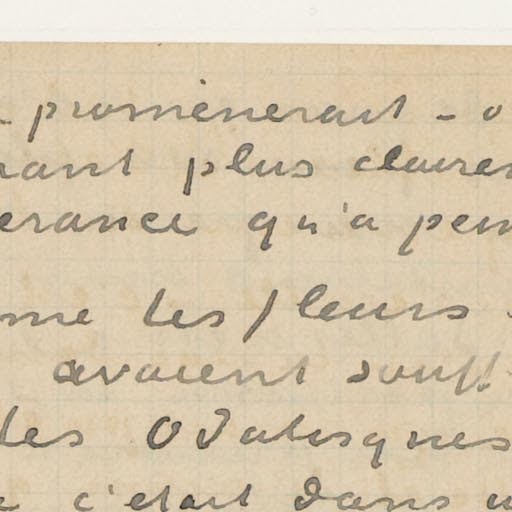 promènerait - o
rant plus clairem
erance qu'a pein
me les fleurs
avaient souff
des Odalisques
c'était dans u